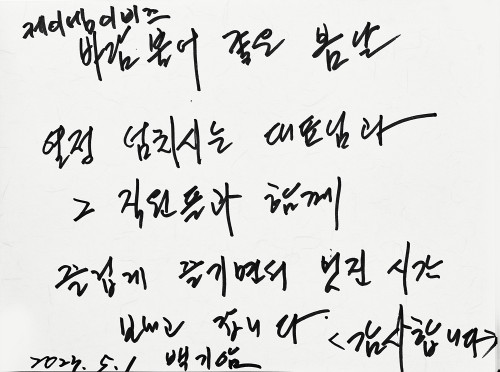 제이에스이비즈
바람 불어 좋은 봄날
열정 넘치시는 대표님과
그 직원들과 함께
즐겁게 즐기면서 멋진 시간
보내고 갑니다 <감사합니다>
2025. 5. 1 백기암